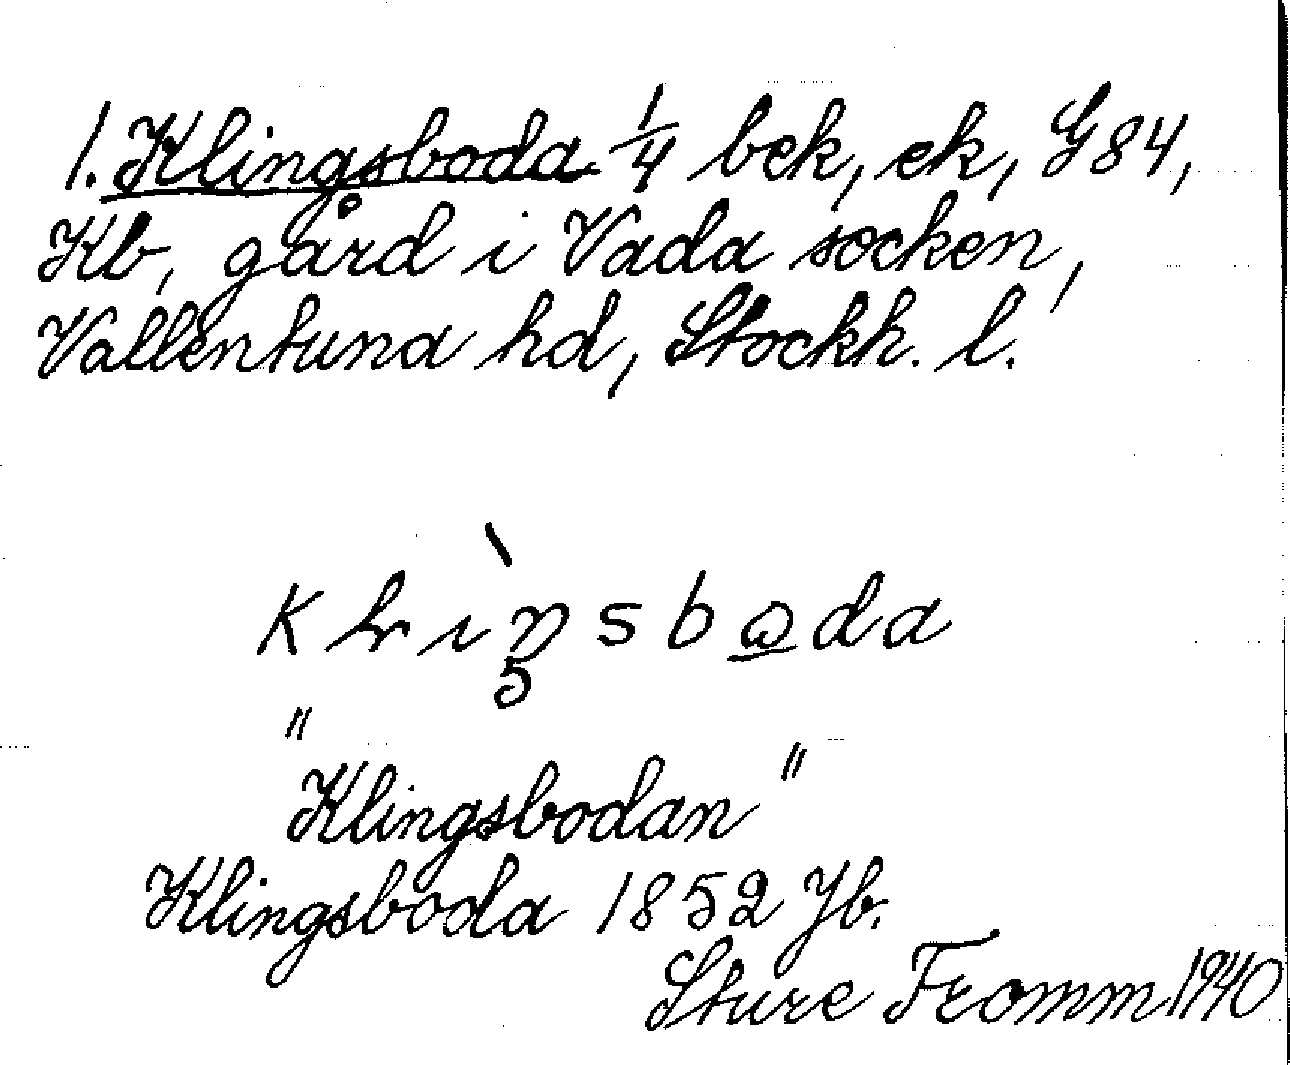 1. Klingsboda 1/4 bek, ek, G84,
Kb, gård i Vada socken,
Vallentuna hd, Stockh. l.
"Klingsbodan"
Klingsboda 1852 Jb.
Sture Fromm 1940